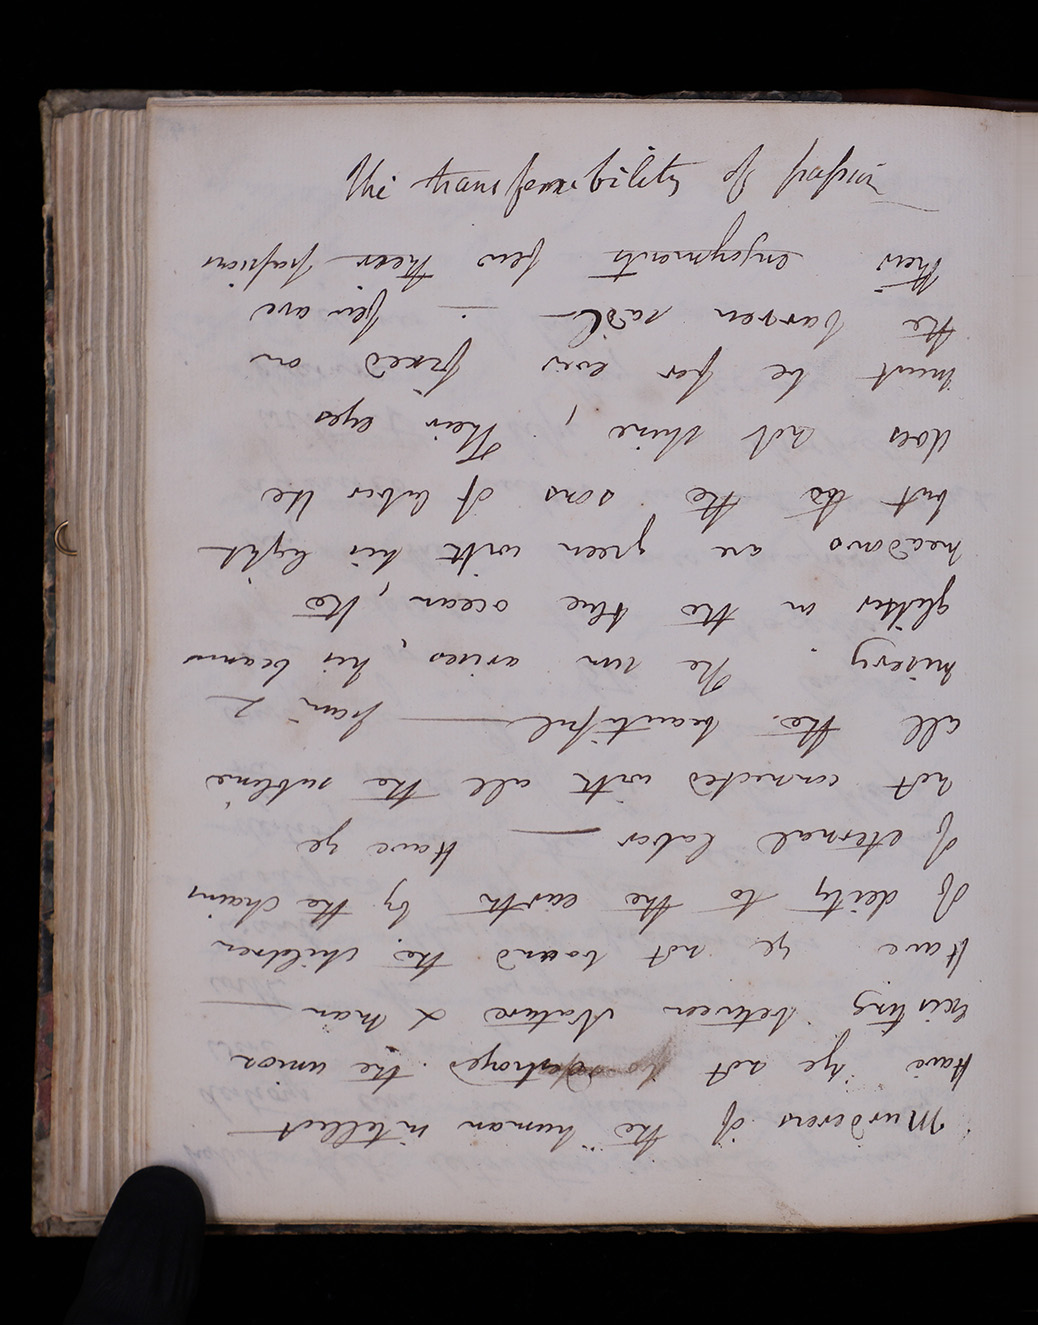 The of passion
Murderers of the human intellect
Have ye not destroyed the union
Existing between Nature & man —
Have ye not bound the children
Of deity to the earth by the chains
Of eternal labor — Have ye
not connected with all the sublime
all the beautiful — pain &
misery. The sun arises, his beams
glitter on the blue ocean, the
meadows are green with his light
but to the sons of labor the
does not shine, Their eyes
must be for ever fixed on
the barren soil —. few are
their enjoyments few their passions